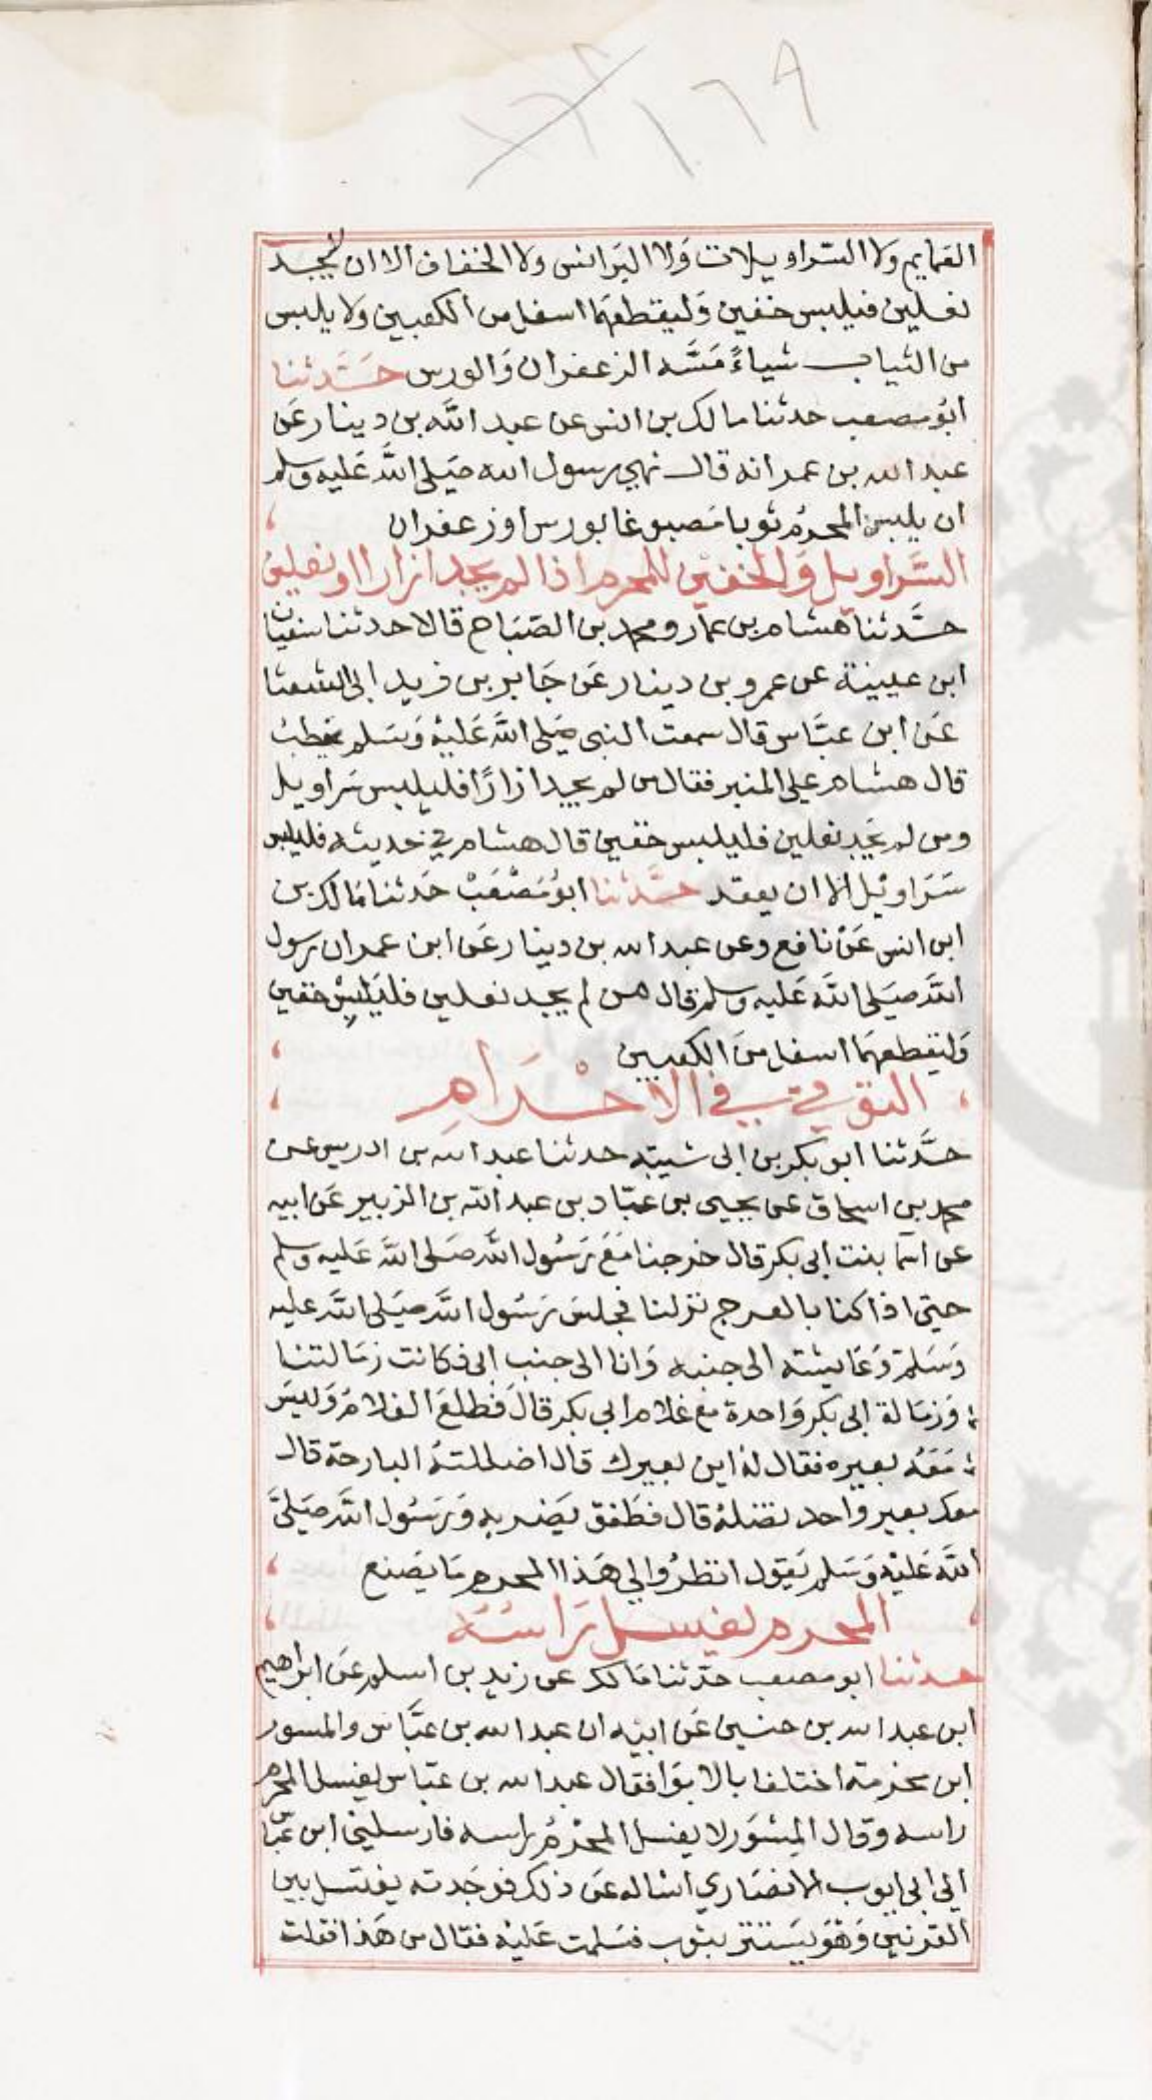 ١٦٩
العمايم ولا السراويلات وَلا البَرانس ولا الخفاف الا ان لا يجد
نعلين فيلبس خفين وَليقطعهَما اسفل من الكعبين ولا يلبس
من الثياب شياءً مَسَّه الزعفران وَالورس حَدَّثنا
ابُو مصعب حدثنا مالك بن انس عن عبد الله بن دينار عَن
عبد الله بن عمر انه قال نهي رسول الله صَلى اللَّه عَليه وسلم
ان يلبس المحرمُ ثوبا مَصبوغا بورس او زعفران
السَّراويل وَالخفين للمحرم اذا لم يجد ازارا او نعلين
حَدَّثنا هشام بن عمار ومحمد بن الصَبَاح قالا حدثنا سفيان
ابن عيينة عن عمرو بن دينار عَن جَابر بن زيد ابى الشعثا
عَن ابن عبَّاس قال سمعت النبى صَلى اللَّه عَليْه وَسَلم يخطبُ
قال هشام علي المنبر فقال من لم يجد ازارًا فليلبس سَراويل
ومن لم يَجد نعلين فليلبس خفين قال هشام في حديثه فليلبس
سَرَاويْل الا ان يعقد حدَّثنا ابُو مَصْعَبْ حَدثنا مَالك بن
ابن انس عَنْ نافع وعن عبد الله بن دينار عَن ابن عمر ان رسول
اللَّه صَلى اللَّه عَليه وسلم قال من لم يجد نعلين فليَلبِسْ خفين
وَليقطعهمَا اسفل منَ الكعبين
التوقي في الاحْرَامِ
حدَّثنا ابو بكر بن ابى شيبَه حدثنا عبد الله بن ادريس عن
محمد بن اسحاق عن يحيى بن عبَّاد بن عبد الله بن الزبير عَن ابيه
عن اسَما بنت ابى بكر قال خرجنا مَعَ رَسُول اللَّه صَلى اللَّه عَليه وسلم
حتى اذا كنا بالعرج نزلنا فجلسَ رَسُول اللَّه صَلى اللَّه عليه
وَسَلم وَعَايشته الى جنبه وَانا الى جنب ابى فكانت زمَالتنا
وَزمَالة ابى بكر وَاحدة مع غلام ابي بكر قالَ فطلعَ الغلامُ وَليسَ
مَعَهُ بعيره فقال لهُ اين بعيرك قال اضللتهُ البارحة قال
معك بعير واحد تضلهُ قال فطَفق يَضربه وَرَسُول اللَّه صَلىَّ
اللَّه عَليْه وَسَلم يَقول انظرُوا الي هَذا المحرم مَا يَصنع
المحرم يغسل رَاسَهُ
حدثنا ابو مصعب حدّثنا مَالك عن زيد بن اسلم عَن ابراهيم
ابن عبد الله بن حنين عَن ابيْه ان عبد الله بن عبَّاس والمسور
ابن مخرمة اختلفا بالابوَا فقال عبد الله بن عبَّاس يغسل المحرم
راسه وقال المِسْوَر لا يغسل المحْرمُ راسه فارسلني ابن عبَّا
الي ابى ايوب الانصَاري اساله عَن ذلك فوجَدته يغتسل بين
القرنين وَهُوَ يَسَتتر بثوب فسَلمت عَليْه فقال من هَذا فقلت